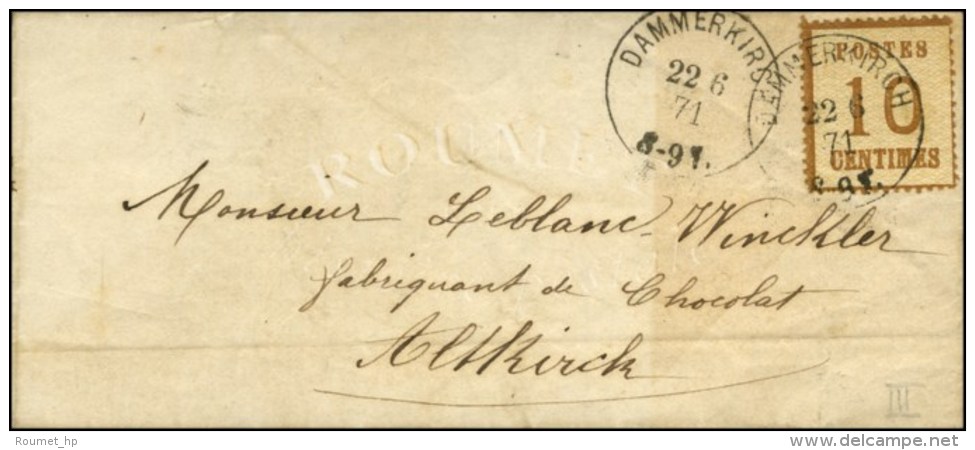 DAMMERKIRCH
22 6
71
8-9V.
DAMMERKIRCH
22 6
71
8-9V.
POSTES
10
CENTIMES
ROUMET
Monsieur Leblanc-Winckler
fabriquant de Chocolat
Altkirch
III
Roumet_hp
www.delcampe.net